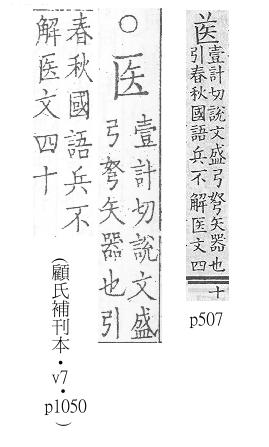 医
壹計切說文盛弓弩矢器也
引春秋國語兵不解医文四
十
p507
○医
壹計切說文盛
弓弩矢器也引
春秋國語兵不
解医文四十
(顧氏補刊本・v7・p1050)